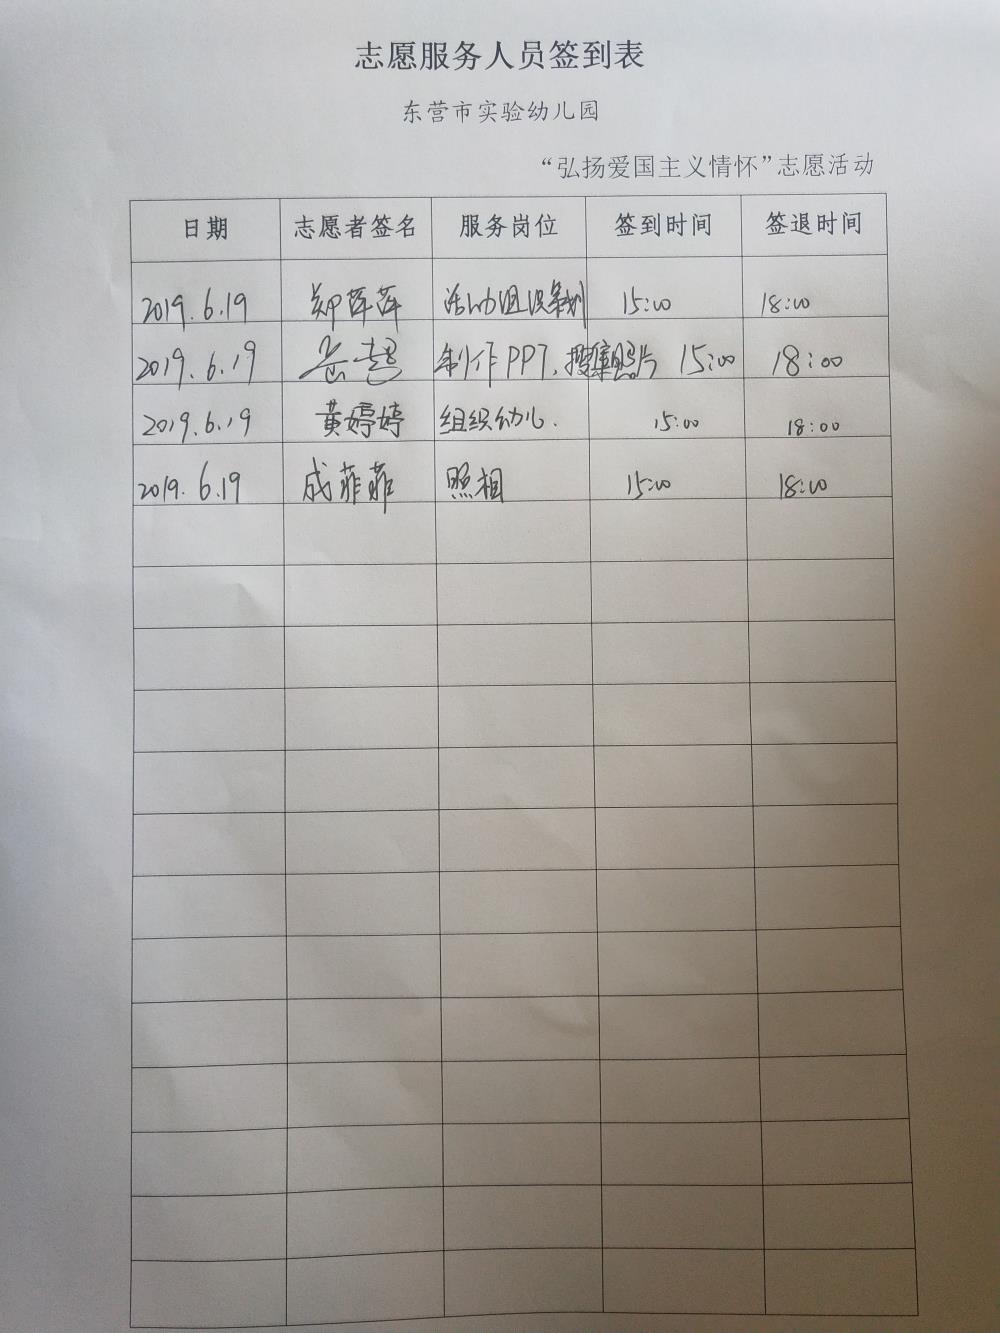 志愿服务人员签到表
东营市实验幼儿园
“弘扬爱国主义情怀”志愿活动
日期 志愿者签名 服务岗位 签到时间 签退时间
2019.6.19 郑萍萍 活动组织策划 15:00 18:00
2019.6.19 岳 制作PPT、搜集照片 15:00 18:00
2019.6.19 黄婷婷 组织幼儿. 15:00 18:00
2019.6.19 成菲菲 照相 15:00 18:00